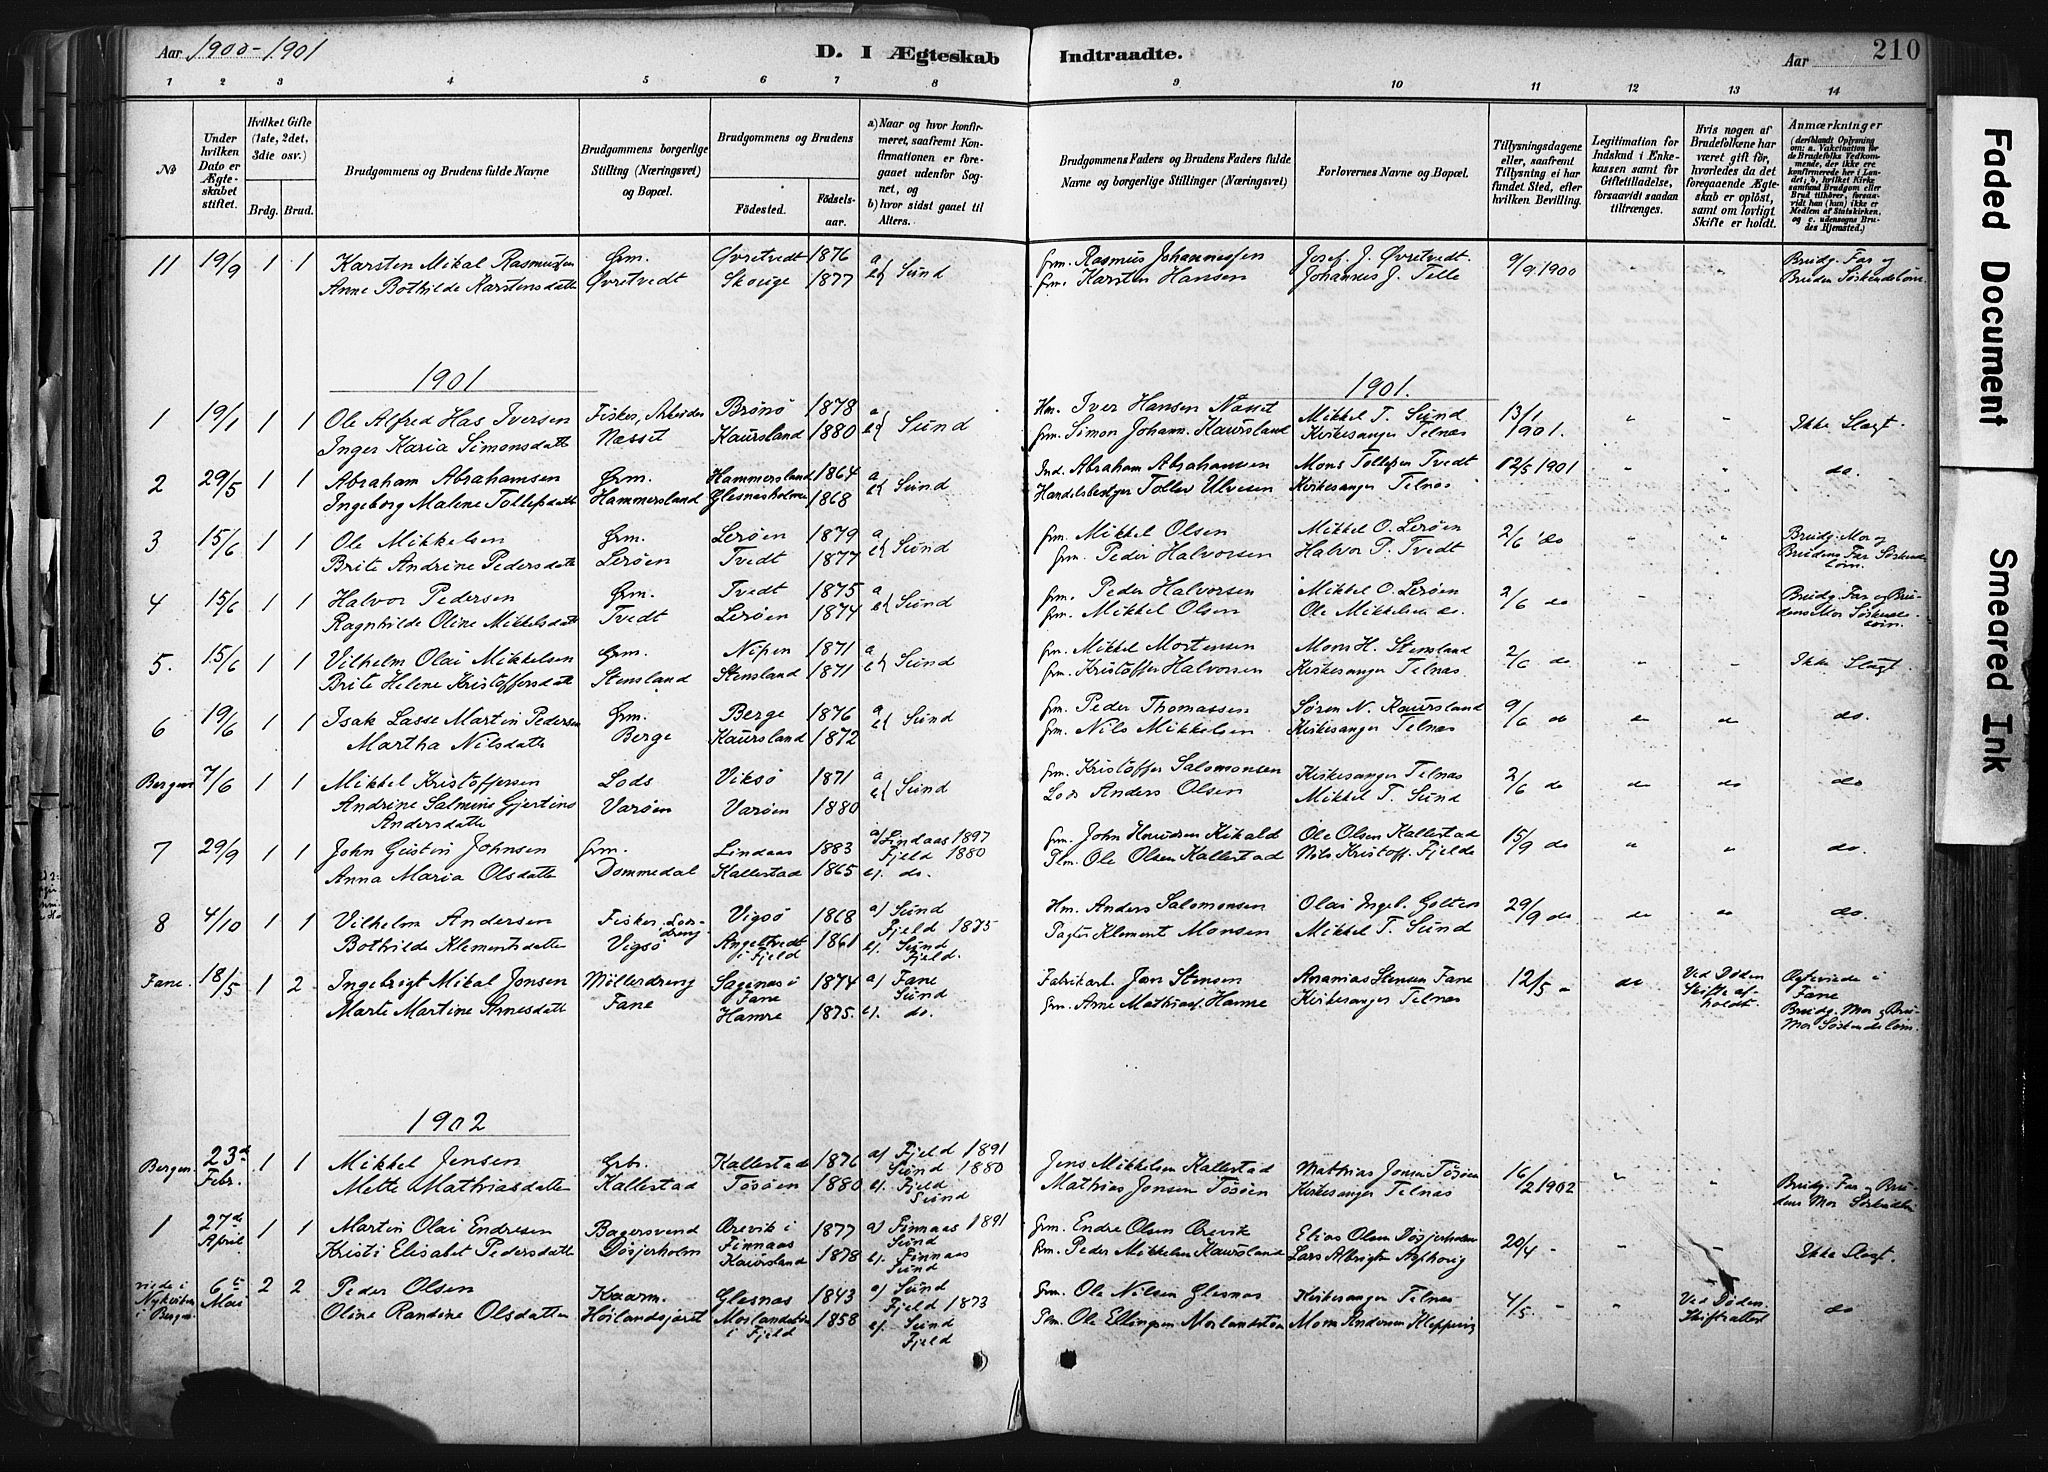 Aar 1900-1901
D. I Ægteskab Indtraadte.
Aar
210
1 2 3 4 5 6 7 8 9 10 11 12 13 14
No
Under hvilken Dato er Ægteskabet stiftet.
Hvilket Gifte (1ste, 2det, 3die osv.)
Brdg. Brud.
Brudgommens og Brudens fulde Navne
Brudgommens borgerlige Stilling (Næringsvei) og Bopæl.
Brudgommens og Brudens
Födested.
Födselsaar.
a) Naar og hvor konfirmeret, saafremt Konfirmationen er foregaaet udenfor Sognet, og
b) hvor sidst gaaet til Alters.
Brudgommens Faders og Brudens Faders fulde Navne og borgerlige Stillinger (Næringsvei)
Forlovernes Navne og Bopæl.
Tillysningsdagene eller, saafremt Tillysning ei har fundet Sted, efter hvilken Bevilling.
Legitimation for Indskud i Enkekassen samt for Giftetilladelse, forsaavidt saadan tiltrænges.
Hvis nogen af Brudefolkene har været gift før, hvorledes da det foregaaende Ægteskab er oplöst, samt om lovligt Skifte er holdt.
Anmærkninger
(derfblandt Oplysning om: a. Vakcination før de Brudefolks Vedkommende, der ikke ere konfirmerede her i Landet; b, hvilket Kirkesamfund Brudgom eller Brud tilhører, forsaavidt han (hun) ikke er Medlem af Statskirken, og c. udensogns Brudes Hjemsted.)
11 19/9 1 1 Karsten Mikal Rasmussen Grm. Øvretvedt 1876 a Grm. Rasmus Johannessen Josef J. Øvretvedt. 9/9 1900 " Brudg. Far og
Anne Bothilde Karstensdatter Øvretvedt Skouge 1877 Sund Grm. Karsten Hansen Johannes J. Telle Bruden Søskendebørn.
1901
1901.
1 19/1 1 1 Ole Alfred Has Iversen Fisker, Arbeider Brønø 1878 a Hm. Iver Hansen Næsset Mikkel T. Sund 13/1 " " Ikke Slægt.
Inger Karia Simonsdatter Næsset Kaursland 1880 Sund Grm. Simon Johann. Kaursland Kirkesanger Telnæs 1901.
2 29/5 1 1 Abraham Abrahamsen Grm. Hammersland 1864 a Ind. Abraham Abrahamsen Mons Tollefsen Tvedt 12/5 1901 " " do.
Ingeborg Malene Tollefsdatter Hammersland Glesnæsholmen 1868 Sund Handelsbestyrer Tollev Ulvesen Kirkesanger Telnæs
3 15/6 1 1 Ole Mikkelsen Grm. Lerøen 1879 a Grm. Mikkel Olsen Mikkel O. Lerøen 2/6 do " " Brudg. Mor og
Brite Andrine Pedersdatter Lerøen Tvedt 1877 Sund Grm. Peder Halvorsen Halvor P. Tvedt Brudens Far Søskendebørn.
4 15/6 1 1 Halvor Pedersen Grm. Tvedt 1875 a Grm. Peder Halvorsen Mikkel O. Lerøen 2/6 do " " Brudg. Far og Bru-
Ragnhilde Oline Mikkelsdatter Tvedt Lerøen 1874 Sund Grm. Mikkel Olsen Ole Mikkelsen do. dens Mor Søskendebørn.
5. 15/6 1 1 Vilhelm Olai Mikkelsen Grm. Nipen 1871 a Grm. Mikkel Mortensen Mons H. Stensland 2/6 do " " Ikke Slægt.
Brite Helene Kristoffersdatter Stensland Stensland 1871 Sund Grm. Kristoffer Halvorsen Kirkesanger Telnæs.
6 19/6 1 1 Isak Lasse Martin Pedersen Grm. Berge 1876 a Grm. Peder Thomassen Søren N. Kaursland 9/6 do do do do.
Martha Nilsdatter Berge Kaursland 1872 Sund Grm. Nils Mikkelsen Kirkesanger Telnæs
Bergen 7/6 1 1 Mikkel Kristoffersen Lods Viksø 1871 a Grm. Kristoffer Salomonsen Kirkesanger Telnæs 2/6 do do do do
Andrine Salmine Gjertine Varøen Varøen 1880 Sund Lods Anders Olsen Mikkel T. Sund
Andersdatter
7 29/9 1 1 John Geistin Johnsen Grm. Lindaas 1883 a) Lindaas 1897 Grm. John Kikald Ole Olsen Kallestad 15/9 do " " do.
Anna Maria Olsdatter Dommedal Kallestad 1865 Fjeld 1880 do. Plm. Ole Olsen Kallestad Nils Kristoff. Fjelde
8 4/10 1 1 Vilhelm Andersen Fisker, Lodsdreng Vigsø 1868 a) Sund Hm. Anders Salomonsen Olai Ingeb. Golten 29/9 do do do do.
Bothilde Klementsdatter Vigsø Angeltvedt i Fjeld 1861 Fjeld 1875 Sund Fjeld. Pagter Klement Monsen Mikkel T. Sund
Fane. 18/5 1 2 Ingebrigt Mikal Jonsen Møllerdreng Sagenæs i Fane 1874 a) Fane Fabrikarb. Jon Stensen Ananias Stensen Fane 12/5 - do Ved Døden Skifte afholdt. Ægteviede i Fane
Marte Martine Arnesdatter Fane Hamre 1875. Sund do. Grm. Arne Mathiasf. Hamre Kirkesanger Telnæs Brudg. Mor og Bru- Mor Søskendebørn.
1902
Bergen. 23de Febr. 1 1 Mikkel Jensen Grbr. Kallestad 1876 a) Fjeld 1891 Jens Mikkelsen Kallestad Mathias Jonsen Tøsøen 16/2 1902 " " Brudg. Far og Bru-
Mette Mathiasdatter Kallestad Tøsøen 1880 Sund 1880 Fjeld Sund Mathias Jonsen Tøsøen Kirkesanger Telnæs dens Mor Søskendebørn
1 27de April 1 1 Martin Olai Endresen Bagersvend Ørevik i Finnaas 1877 a) Finnaas 1891 Grm. Endre Olsen Ørevik Elias Olsen Døsjerholm 20/4 - " - Ikke Slægt.
Kristi Elisabet Pedersdatter Døsjerholm Kaursland 1878 Sund Finnaas Sund Grm. Peder Mikkelsen Kaursland Lars Albrigtsen
viede i Nykirken i Bergen 6te Mai 2 2 Peder Olsen Kaarm. Glesnæs 1843 a) Sund Grm. Ole Nilsen Glesnæs Kirkesanger Telnæs 4/5 - " Ved Døden. Skiftet do
Oline Randine Olsdatter Høilandsjøret Morlandstø i Fjeld 1858 Fjeld 1873 Sund Fjeld Plm. Ole Ellingsen Morlandstø Mons Andersen Kleppevig
Faded Document
Smeared Ink